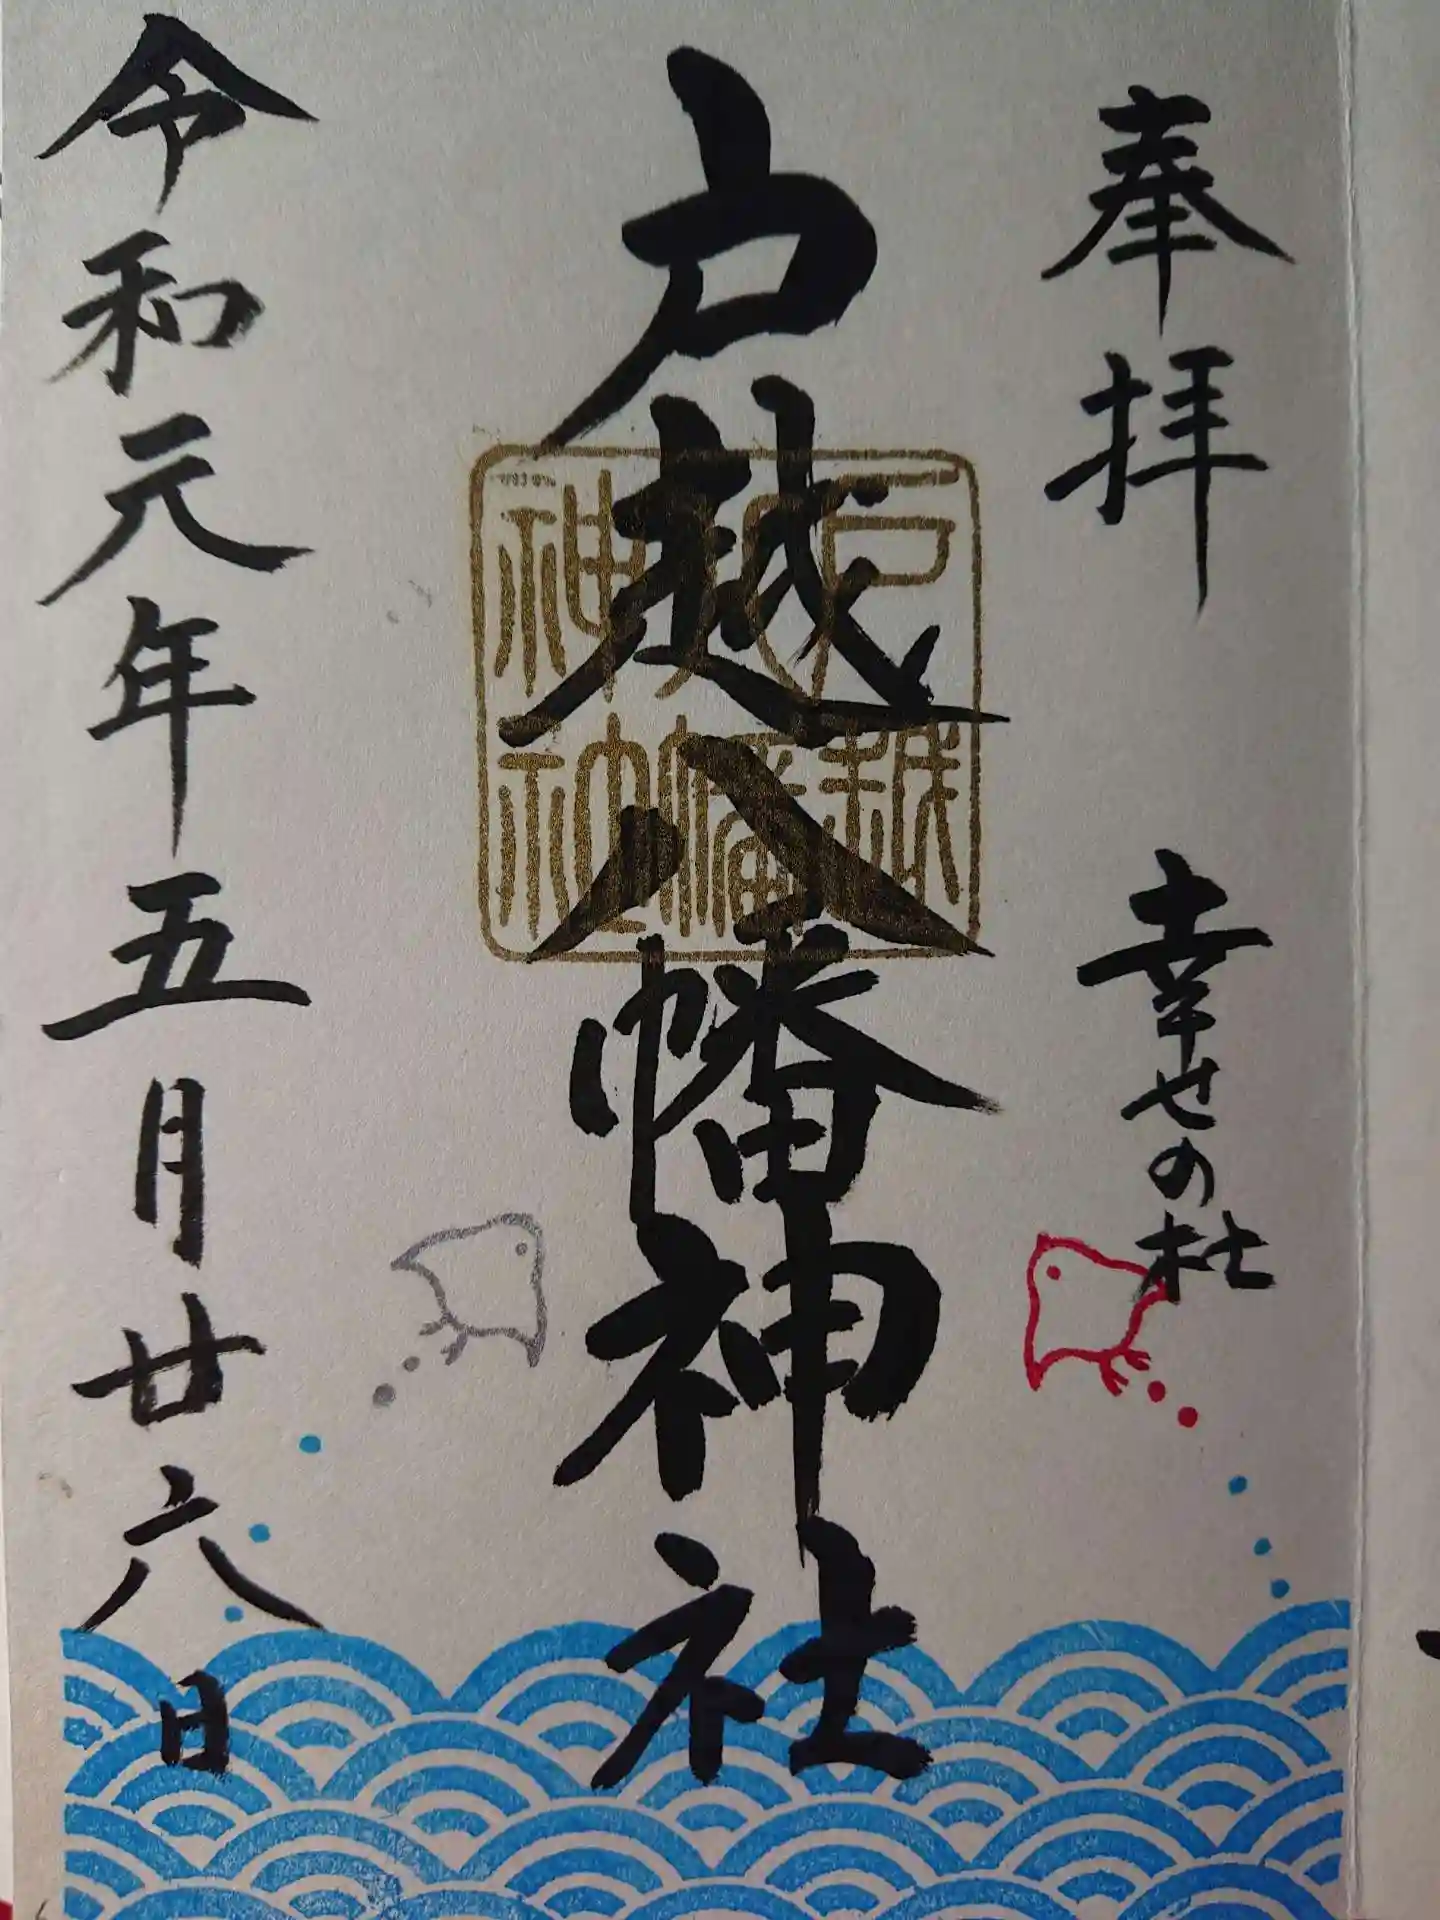 奉拝
幸せの杜
戸越八幡神社
戸越
八幡
神社
令和元年五月廿六日